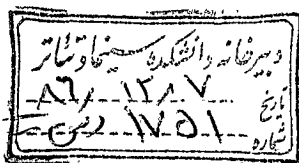 دبیرخانه دانشکده سینما و تئاتر
تاریخ ۸۶/۱۲/۰۷
شماره ۱۷۵۱